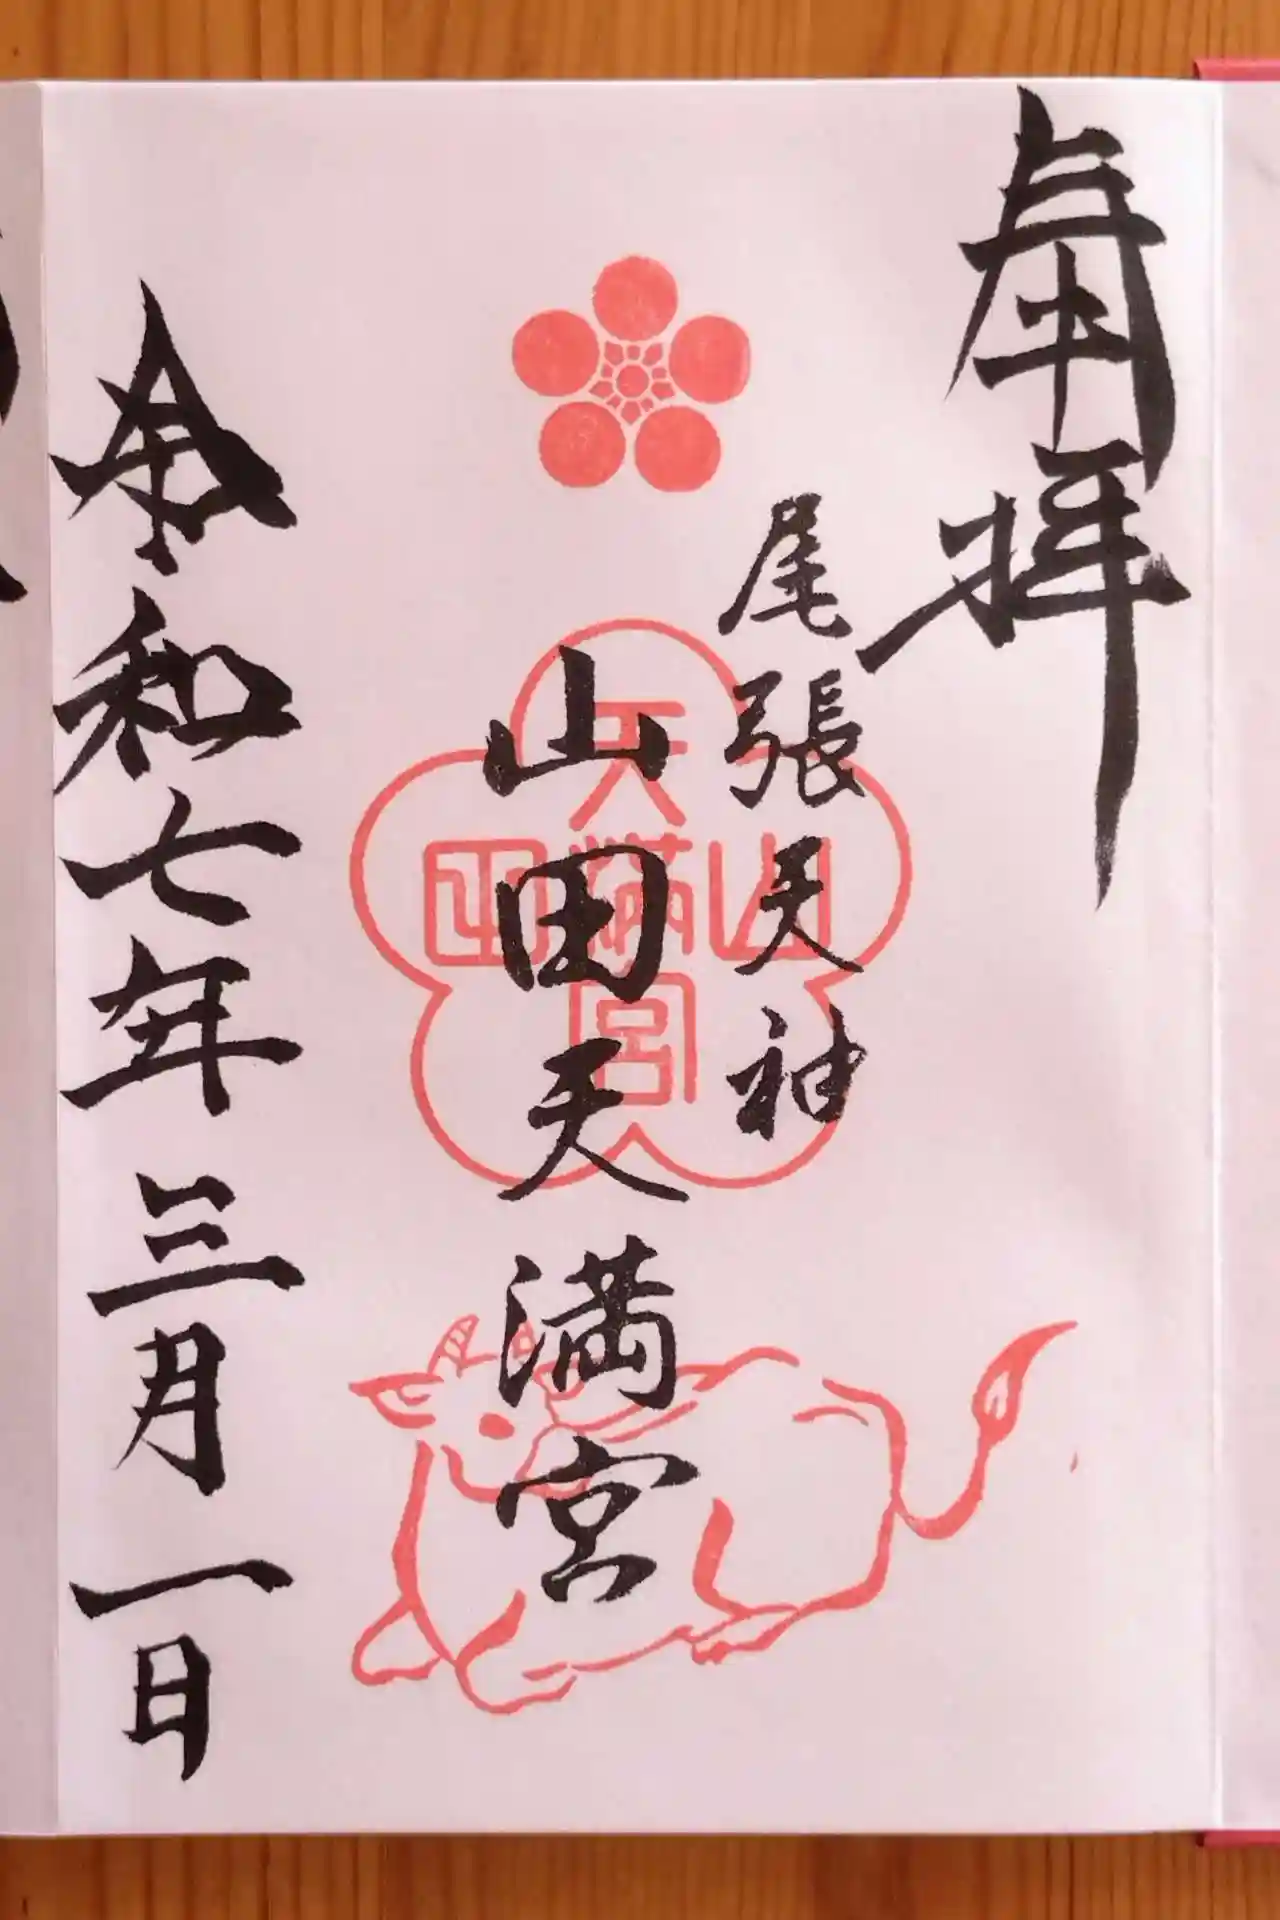 奉拝
尾張天神
山田天満宮
令和七年三月一日
山田
天満宮